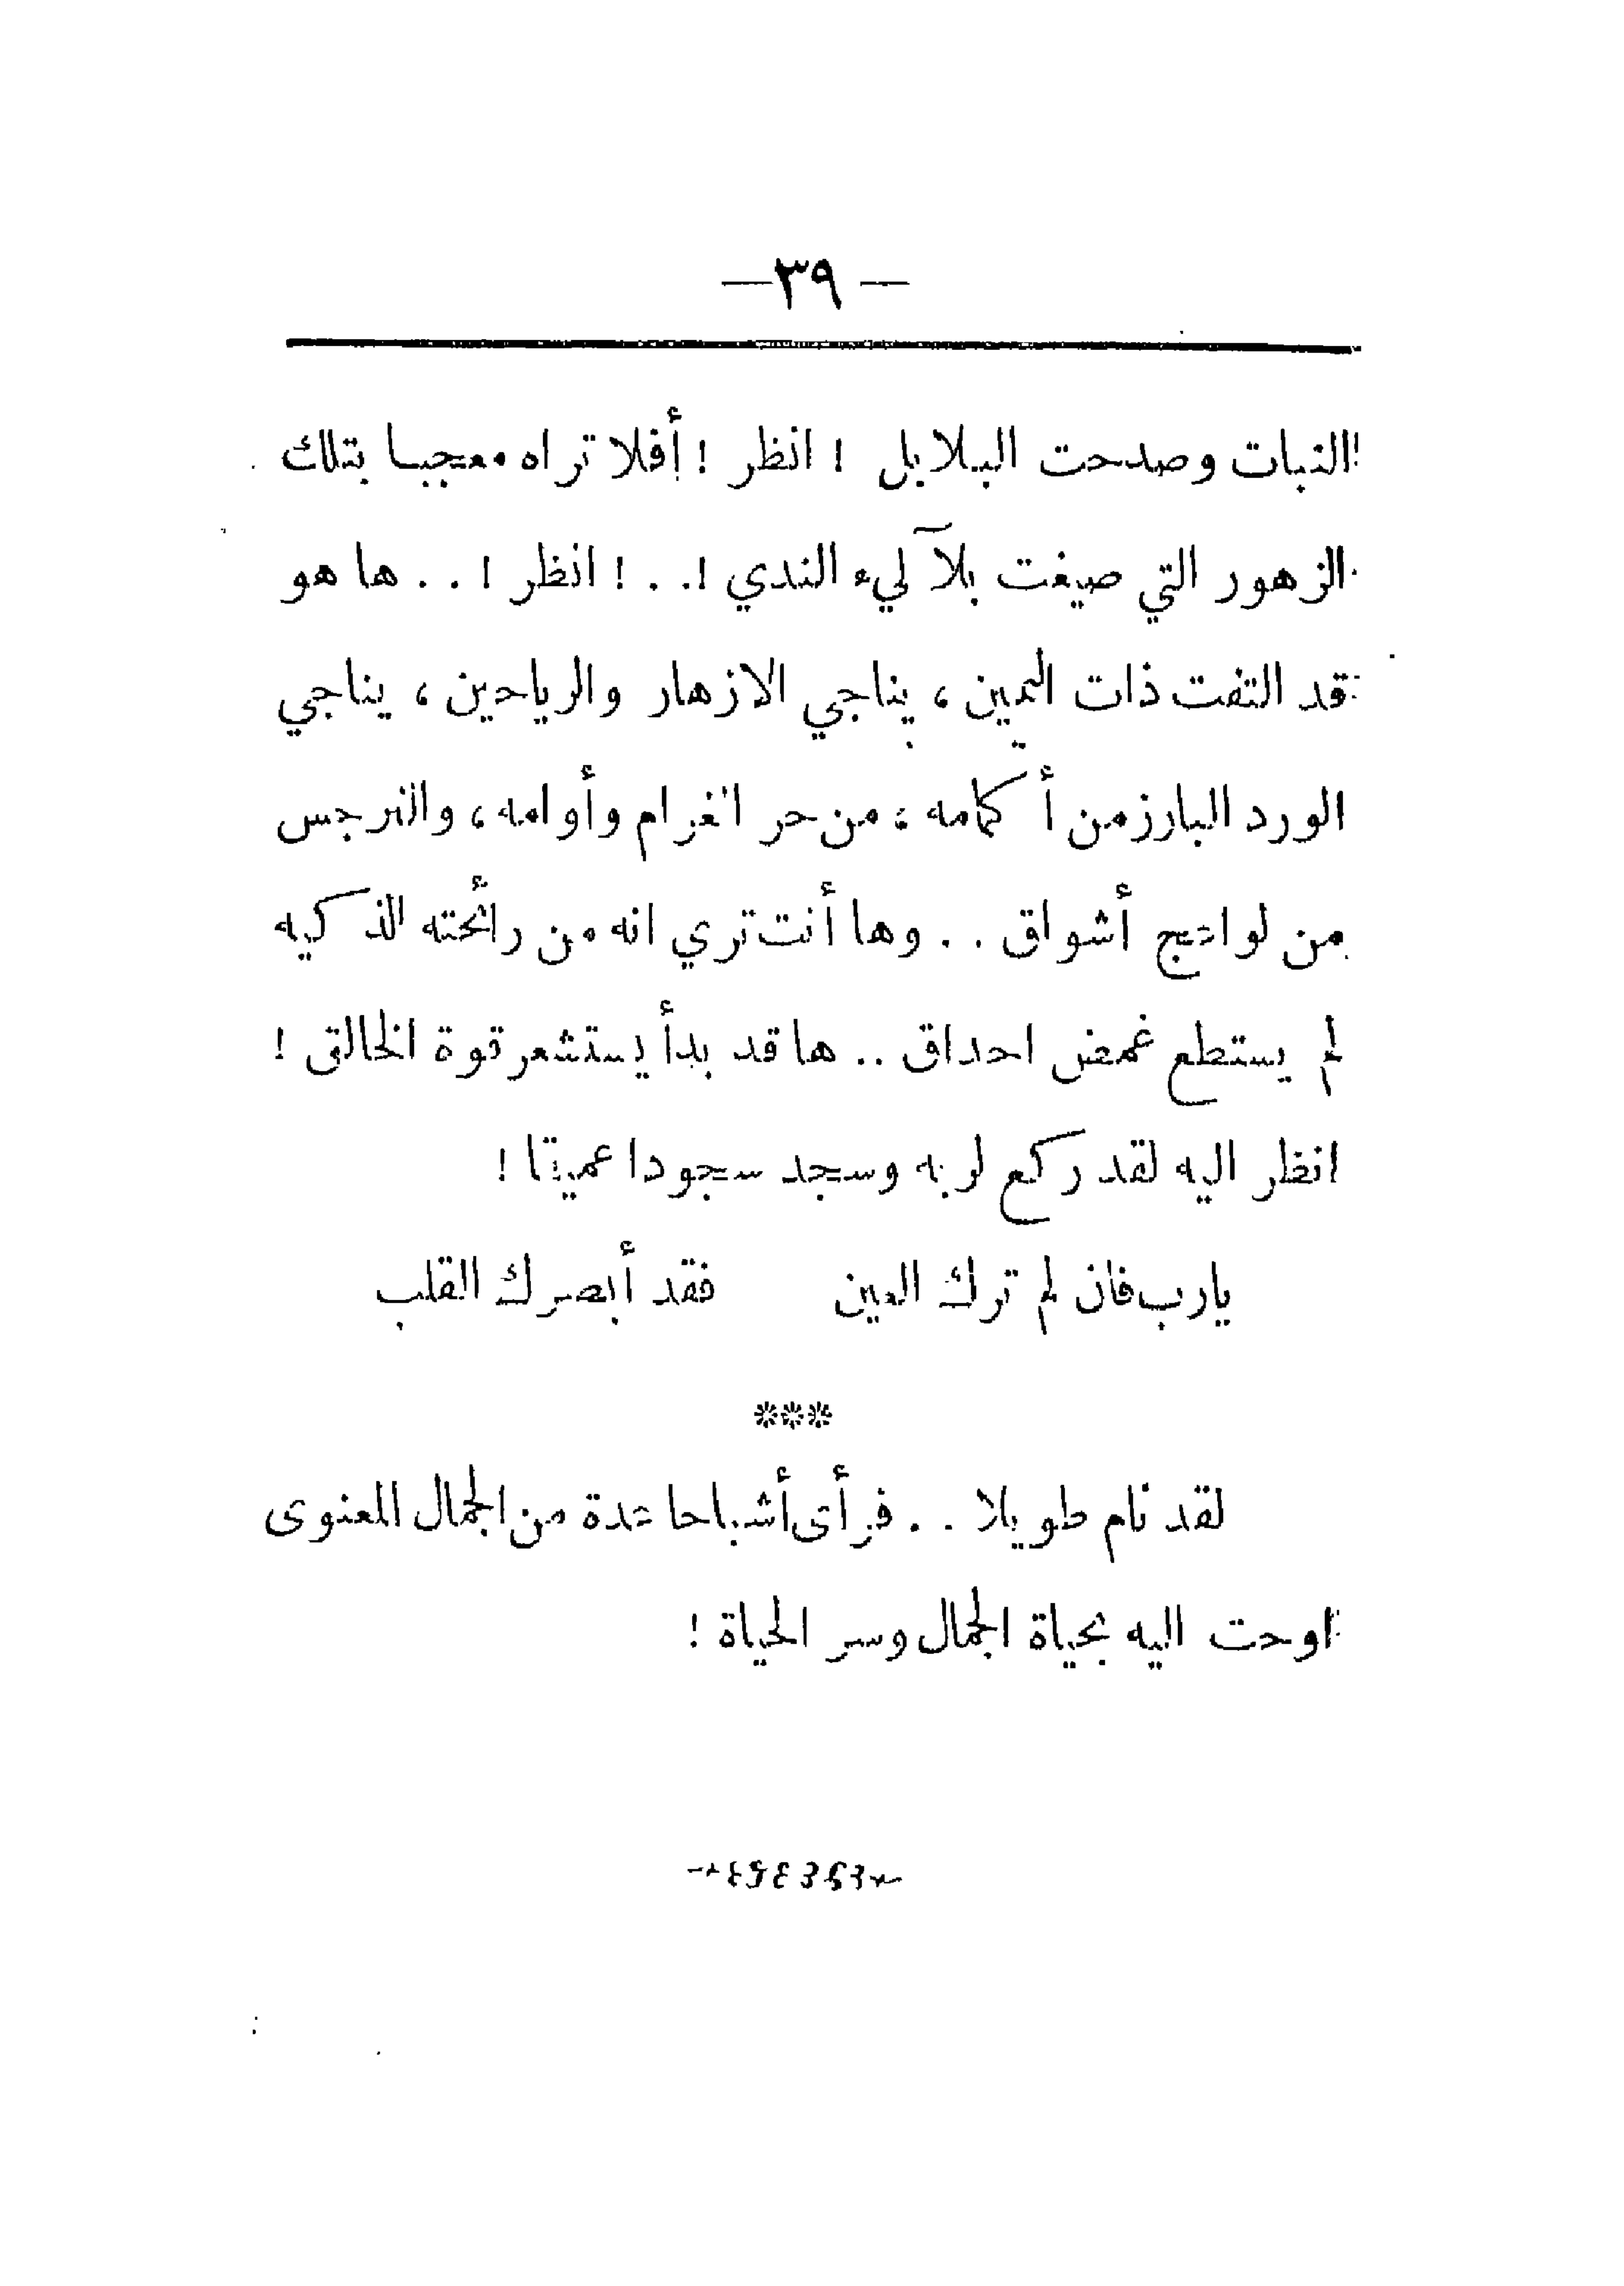 — ٣٩ —
النبات وصدحت البلابل ! انظر ! أفلا تراه معجبا بتلك
الزهور التي صيغت بلآليء الندي !. . ! انظر ! . . ها هو
قد التفت ذات اليمين ، يناجي الازهار والرياحين ، يناجي
الورد البارز من أكمامه ، من حر الغرام وأوامه ، والنرجس
من لواعج أشواق . . وها أنت تري انه من رائحته الذكيه
لم يستطع غمض احداق .. ها قد بدأ يستشعر قوة الخالق !
انظر اليه لقد ركع لربه وسجد سجودا عميقا !
يارب فان لم ترك العين فقد أبصرك القلب
***
لقد نام طويلا . . فرأى أشباحا عدة من الجمال المعنوى
اوحت اليه بحياة الجمال وسر الحياة !